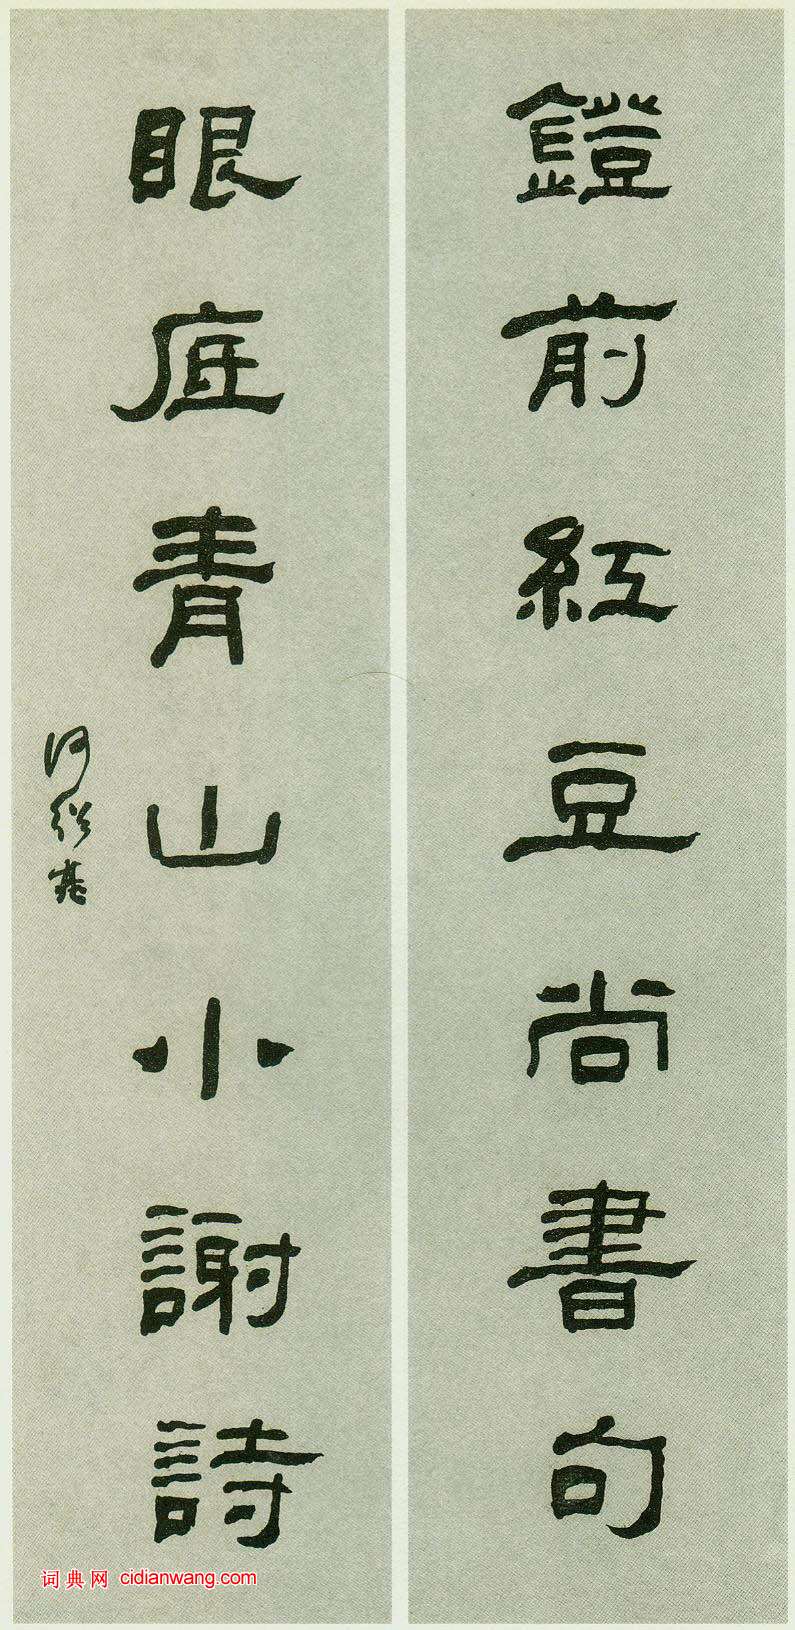 鐙前紅豆尚書句
眼底青山小謝詩
何紹基
词典网 cidianwang.com